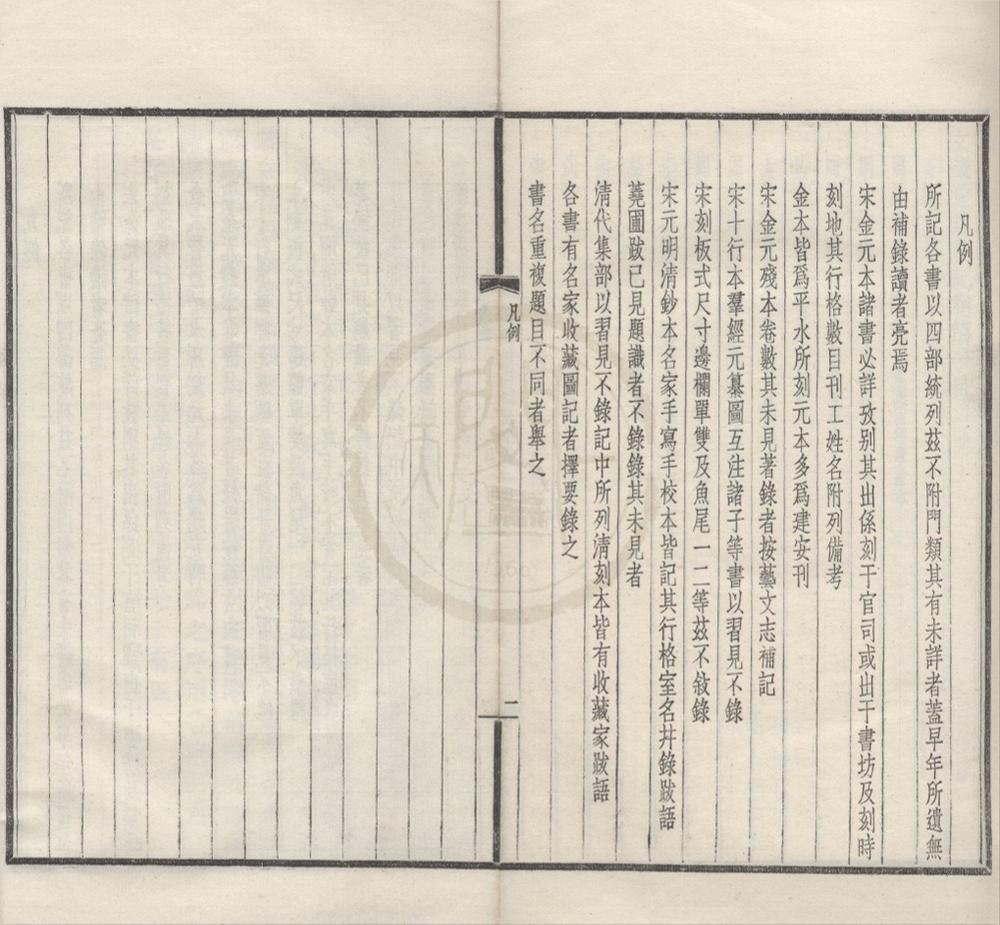 凡例
所記各書以四部統列茲不附門類其有未詳者蓋早年所遺無
由補錄讀者亮焉
宋金元本諸書必詳攷別其出係刻于官司或出于書坊及刻時
刻地其行格數目刊工姓名附列備考
金本皆爲平水所刻元本多爲建安刊
宋金元殘本卷數其未見著錄者按藝文志補記
宋十行本羣經元纂圖互注諸子等書以習見不錄
宋刻板式尺寸邊欄單雙及魚尾一二等茲不敍錄
宋元明清鈔本名家手寫手校本皆記其行格室名幷錄跋語
蕘圃跋已見題識者不錄錄其未見者
清代集部以習見不錄記中所列清刻本皆有收藏家跋語
各書有名家收藏圖記者擇要錄之
書名重複題目不同者舉之
凡例
二